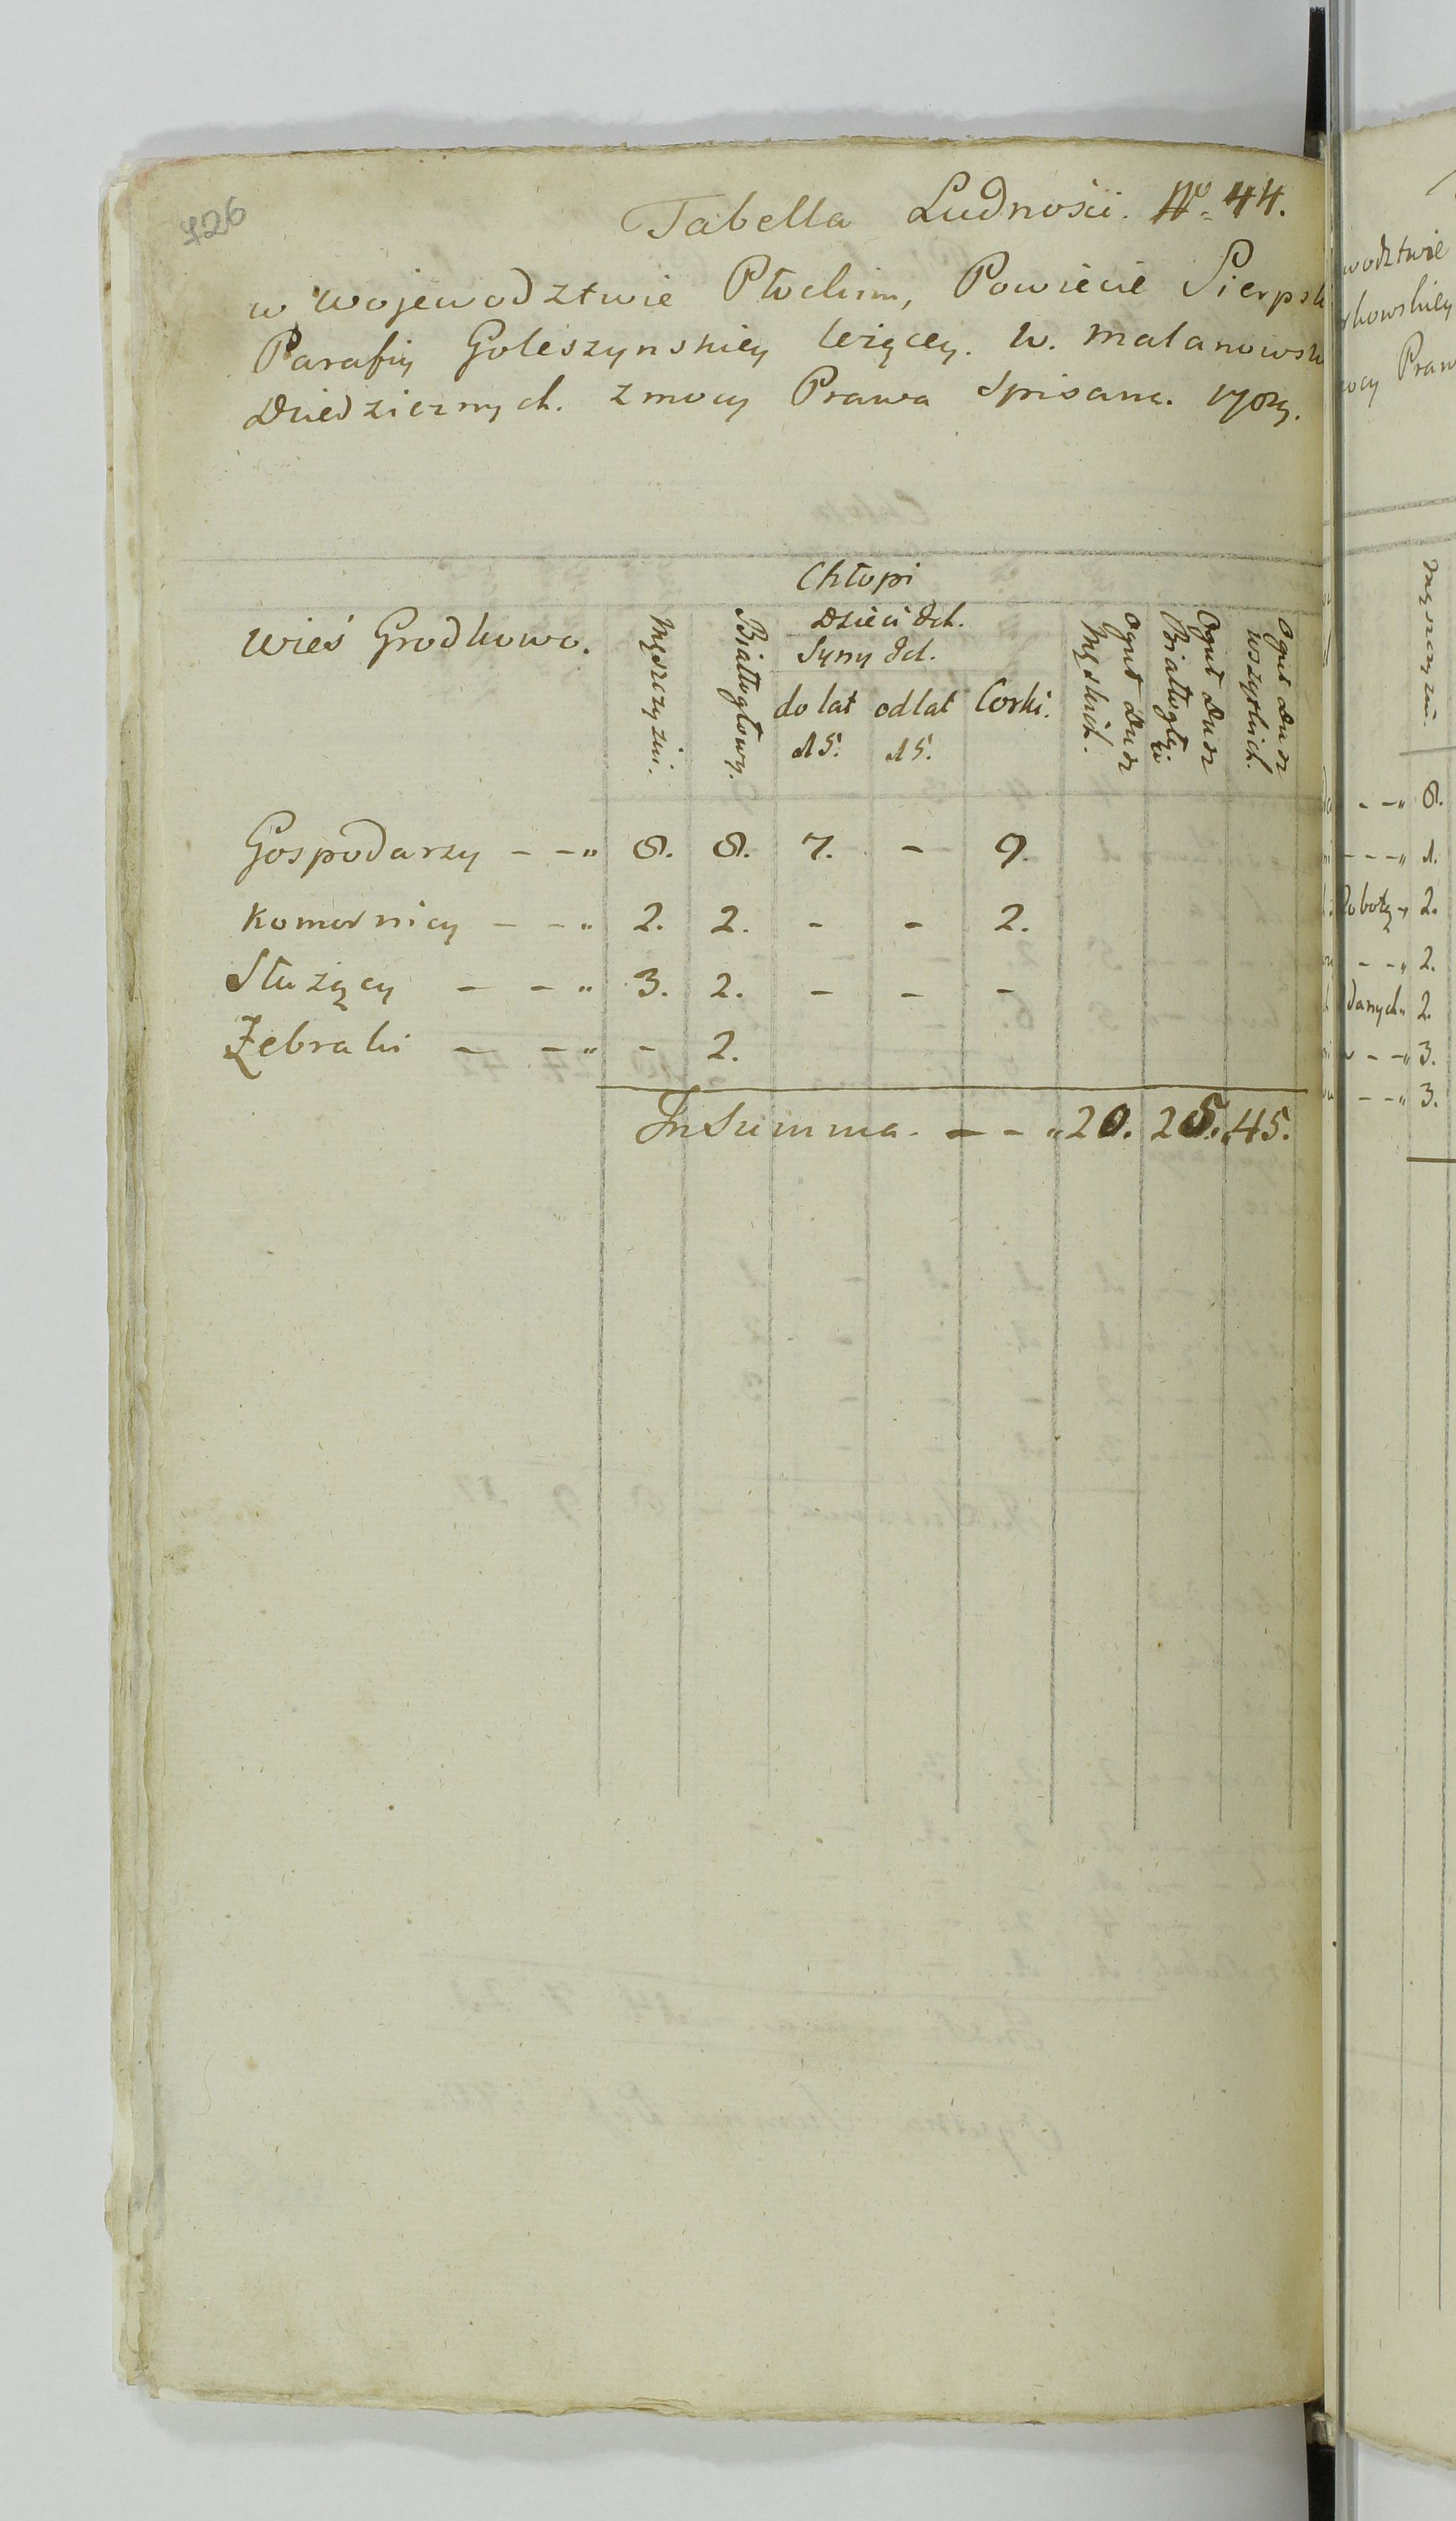 726
Tabella Ludnosci. No. 44.
w Wojewodztwie Płockim, Powiecie Sierpsk
Parafiy Goleszynskiey leżącey. W. Malanowsk
Dziedzicznych. z mocy Prawa Spisana.
Chłopi
Wieś Grodkowo.
Męszczyzni.
Białłogłowy.
Dzieci Ich.
Syny Ich.
do lat 15.
od lat 15.
Corki.
Oguł Dusz Męskich.
Oguł Dusz Białłogłów
Oguł Dusz wszystkich.
Gospodarzy - - „ 8. 8. 7. - 9.
Komornicy - - „ 2. 2. - - 2.
Służący - - „ 3. 2. - - -
Żebraki - - „ - 2.
In Summa. - - „ 20. 25. 45.
wodztwie
kowskiey
ocy Praw
Męszczyzni.
- - „ 8.
- - - „ 1.
Roboty „ 2.
- - „ 2.
danych „ 2.
- - „ 3.
- - „ 3.